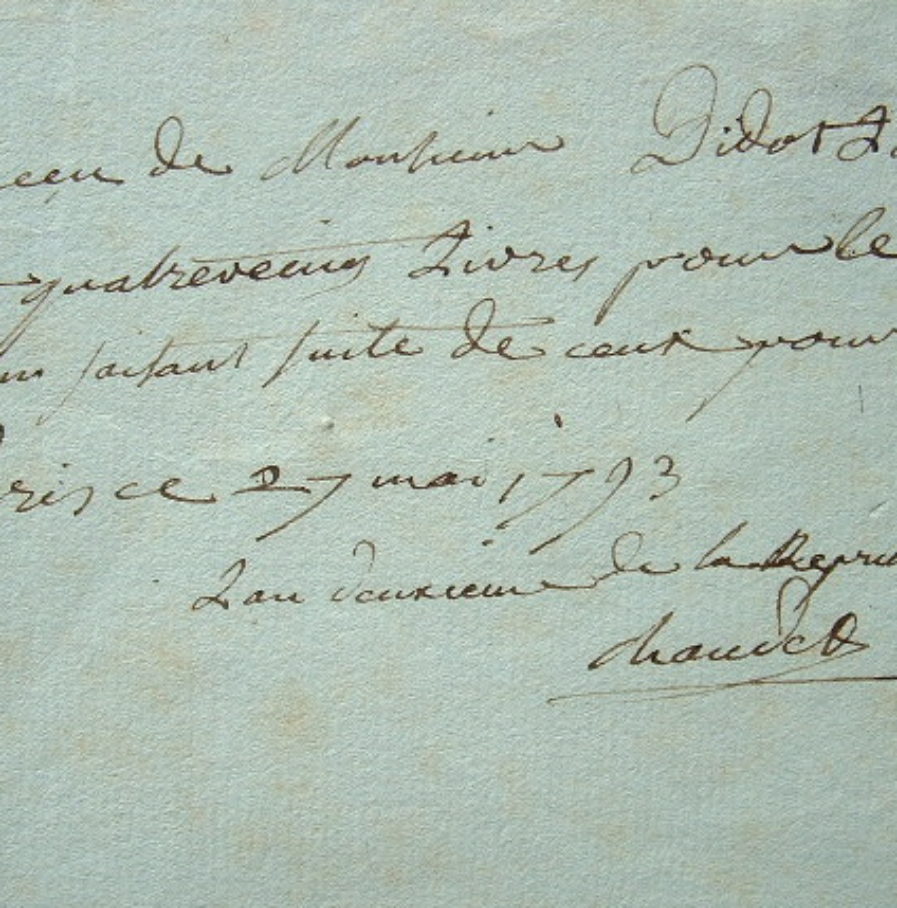 eçu de Monsieur Didot
quatreveings Livres pour le
faisant suite de ceux pour
ris ce 27 mai 1793
Lan deuxieme de la Repu
chaudet